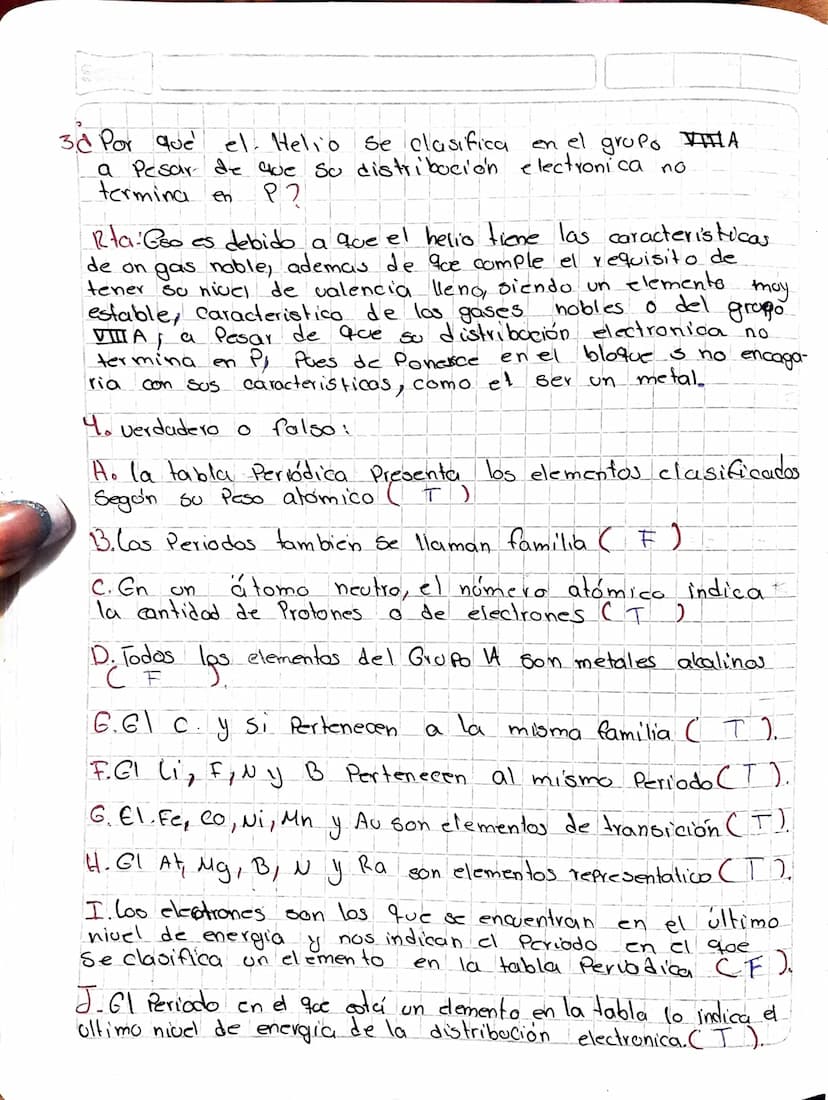 3¿ Por qué el Helio se clasifica en el grupo VIIIA
a pesar de que su distribución electronica no
termina en P?
Rta: Eso es debido a que el helio tiene las características
de un gas noble, ademas de que cumple el requisito de
tener su nivel de valencia lleno, siendo un elemento muy
estable, característico de los gases nobles o del grupo
VIII A, a pesar de que su distribución electronica no
termina en P, pues de ponerse en el bloque s no encaga-
ria con sus características, como el ser un metal.
4. verdadero o falso:
A. la tabla Periódica Presenta los elementos clasificados
Según su Peso atómico ( T )
B. Los Periodos tambien se llaman familia ( F )
C. En un átomo neutro, el número atómico indica
la cantidad de Protones o de electrones ( T )
D. Todos los elementos del Grupo IA son metales alcalinos
( F ).
E. El C. y Si Pertenecen a la misma familia ( T ).
F. El Li, F, N y B Pertenecen al mismo Periodo ( T ).
G. El. Fe, Co, Ni, Mn y Au son elementos de transición ( T ).
H. El At, Mg, B, N y Ra son elementos representatico ( T ).
I. Los electrones son los que se encuentran en el último
nivel de energía y nos indican el Periodo en el que
Se clasifica un elemento en la tabla Periódica ( F ).
J. El Periodo en el que está un elemento en la tabla lo indica el
ultimo nivel de energía de la distribución electronica. ( T ).